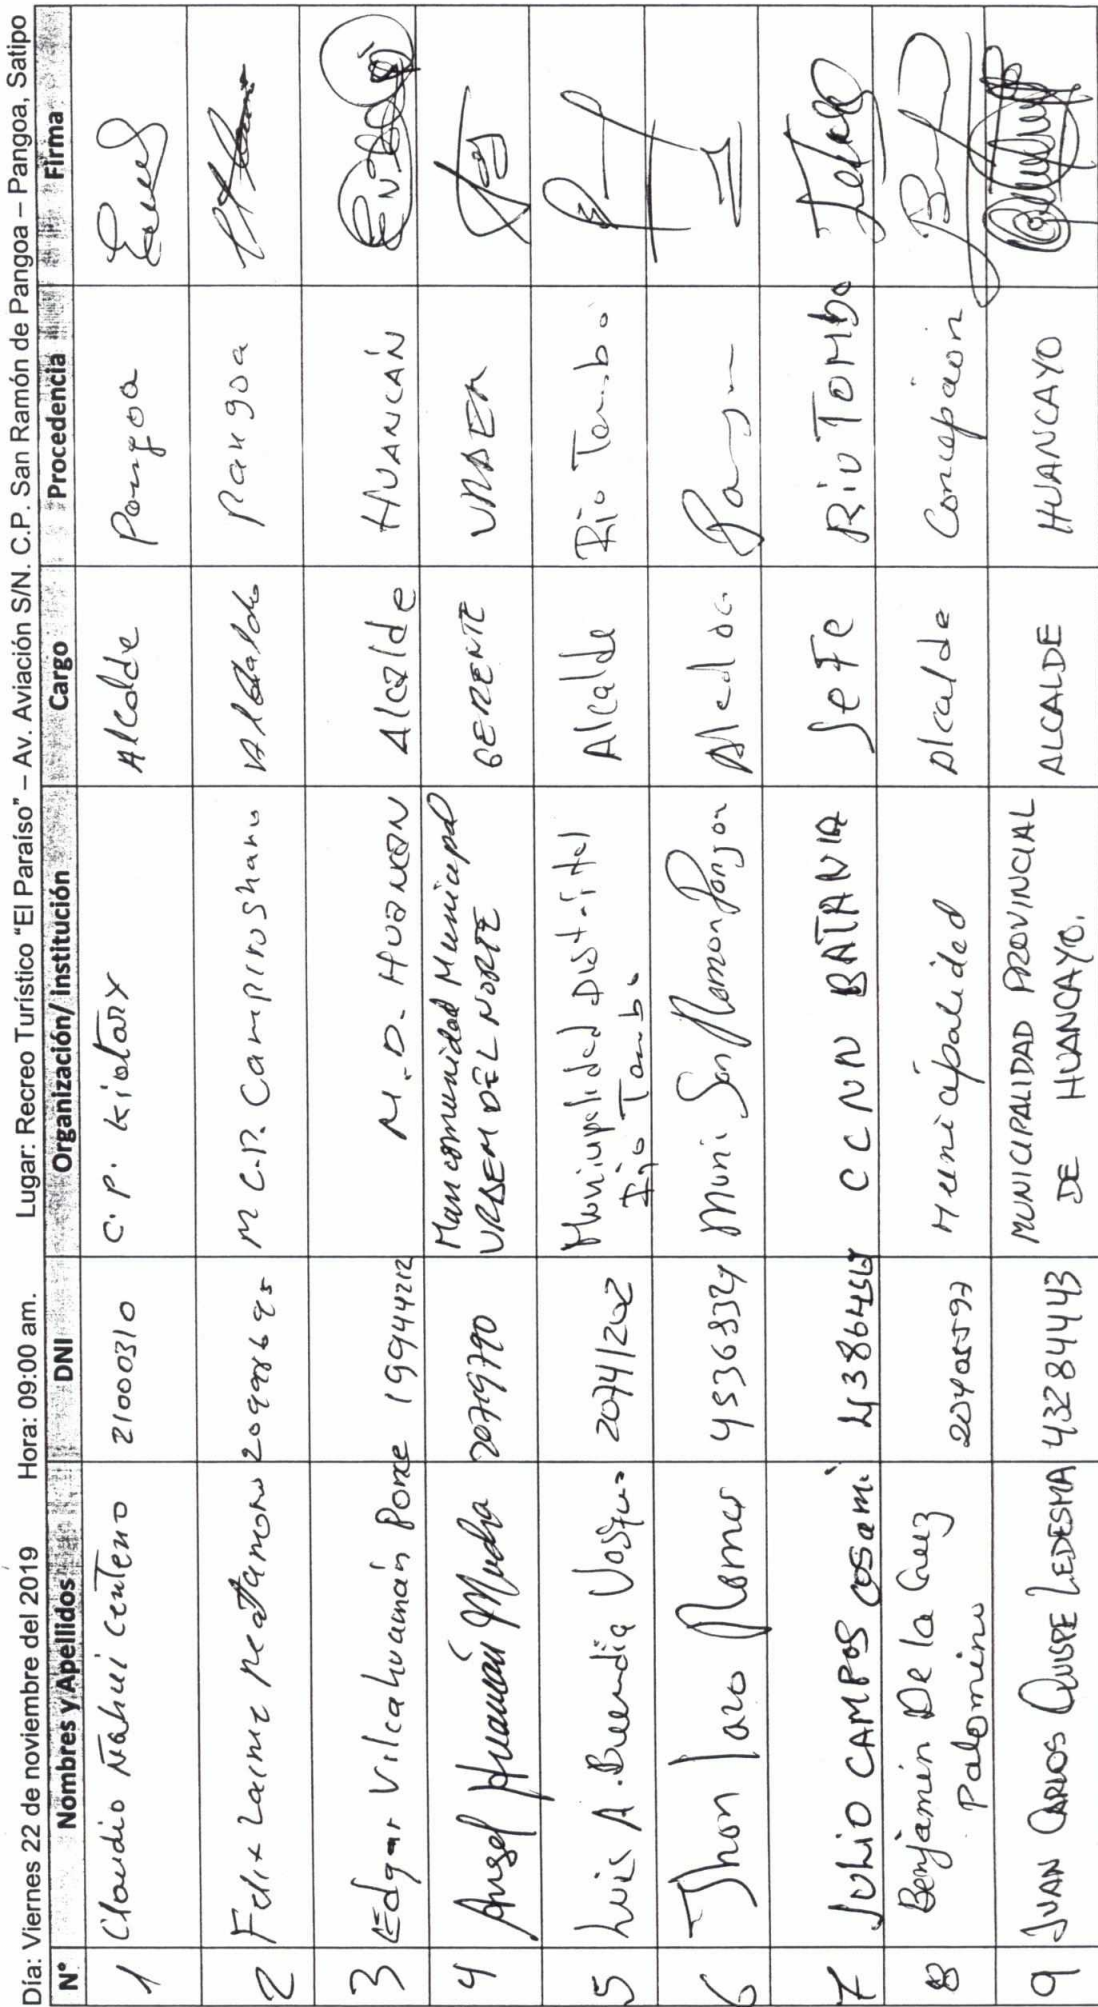 Día: Viernes 22 de noviembre del 2019 Hora: 09:00 am. Lugar: Recreo Turístico "El Paraíso" – Av. Aviación S/N. C.P. San Ramón de Pangoa – Pangoa, Satipo
N° Nombres y Apellidos DNI Organización/ institución Cargo Procedencia Firma
1 Claudio Ñahui Centeno 21000310 C.P. Kiatary Alcalde Pangoa
2 Felix Laime M.C.P. Campirushari Pangoa
3 Edgar Vilcahuamán Ponce 19944212 M.D. HUANCÁN Alcalde HUANCÁN
4 Angel Huamán Mucha 20719790 Mancomunidad Municipal
VRAEM DEL NORTE GERENTE VRAEM
5 Luis A. Buendia 20741202 Municipalidad Distrital
Rio Tambo Alcalde Rio Tambo
6 Jhon 45368324 Muni San Ramon Pangoa
7 JULIO CAMPOS COSAMI CCNN BATANIA JeFe RiO TAMBO
8 Benjamin De la Cruz
Palomino Municipalidad Alcalde Concepcion
9 JUAN CARLOS QUISPE LEDESMA 43284443 MUNICIPALIDAD PROVINCIAL
DE HUANCAYO. ALCALDE HUANCAYO